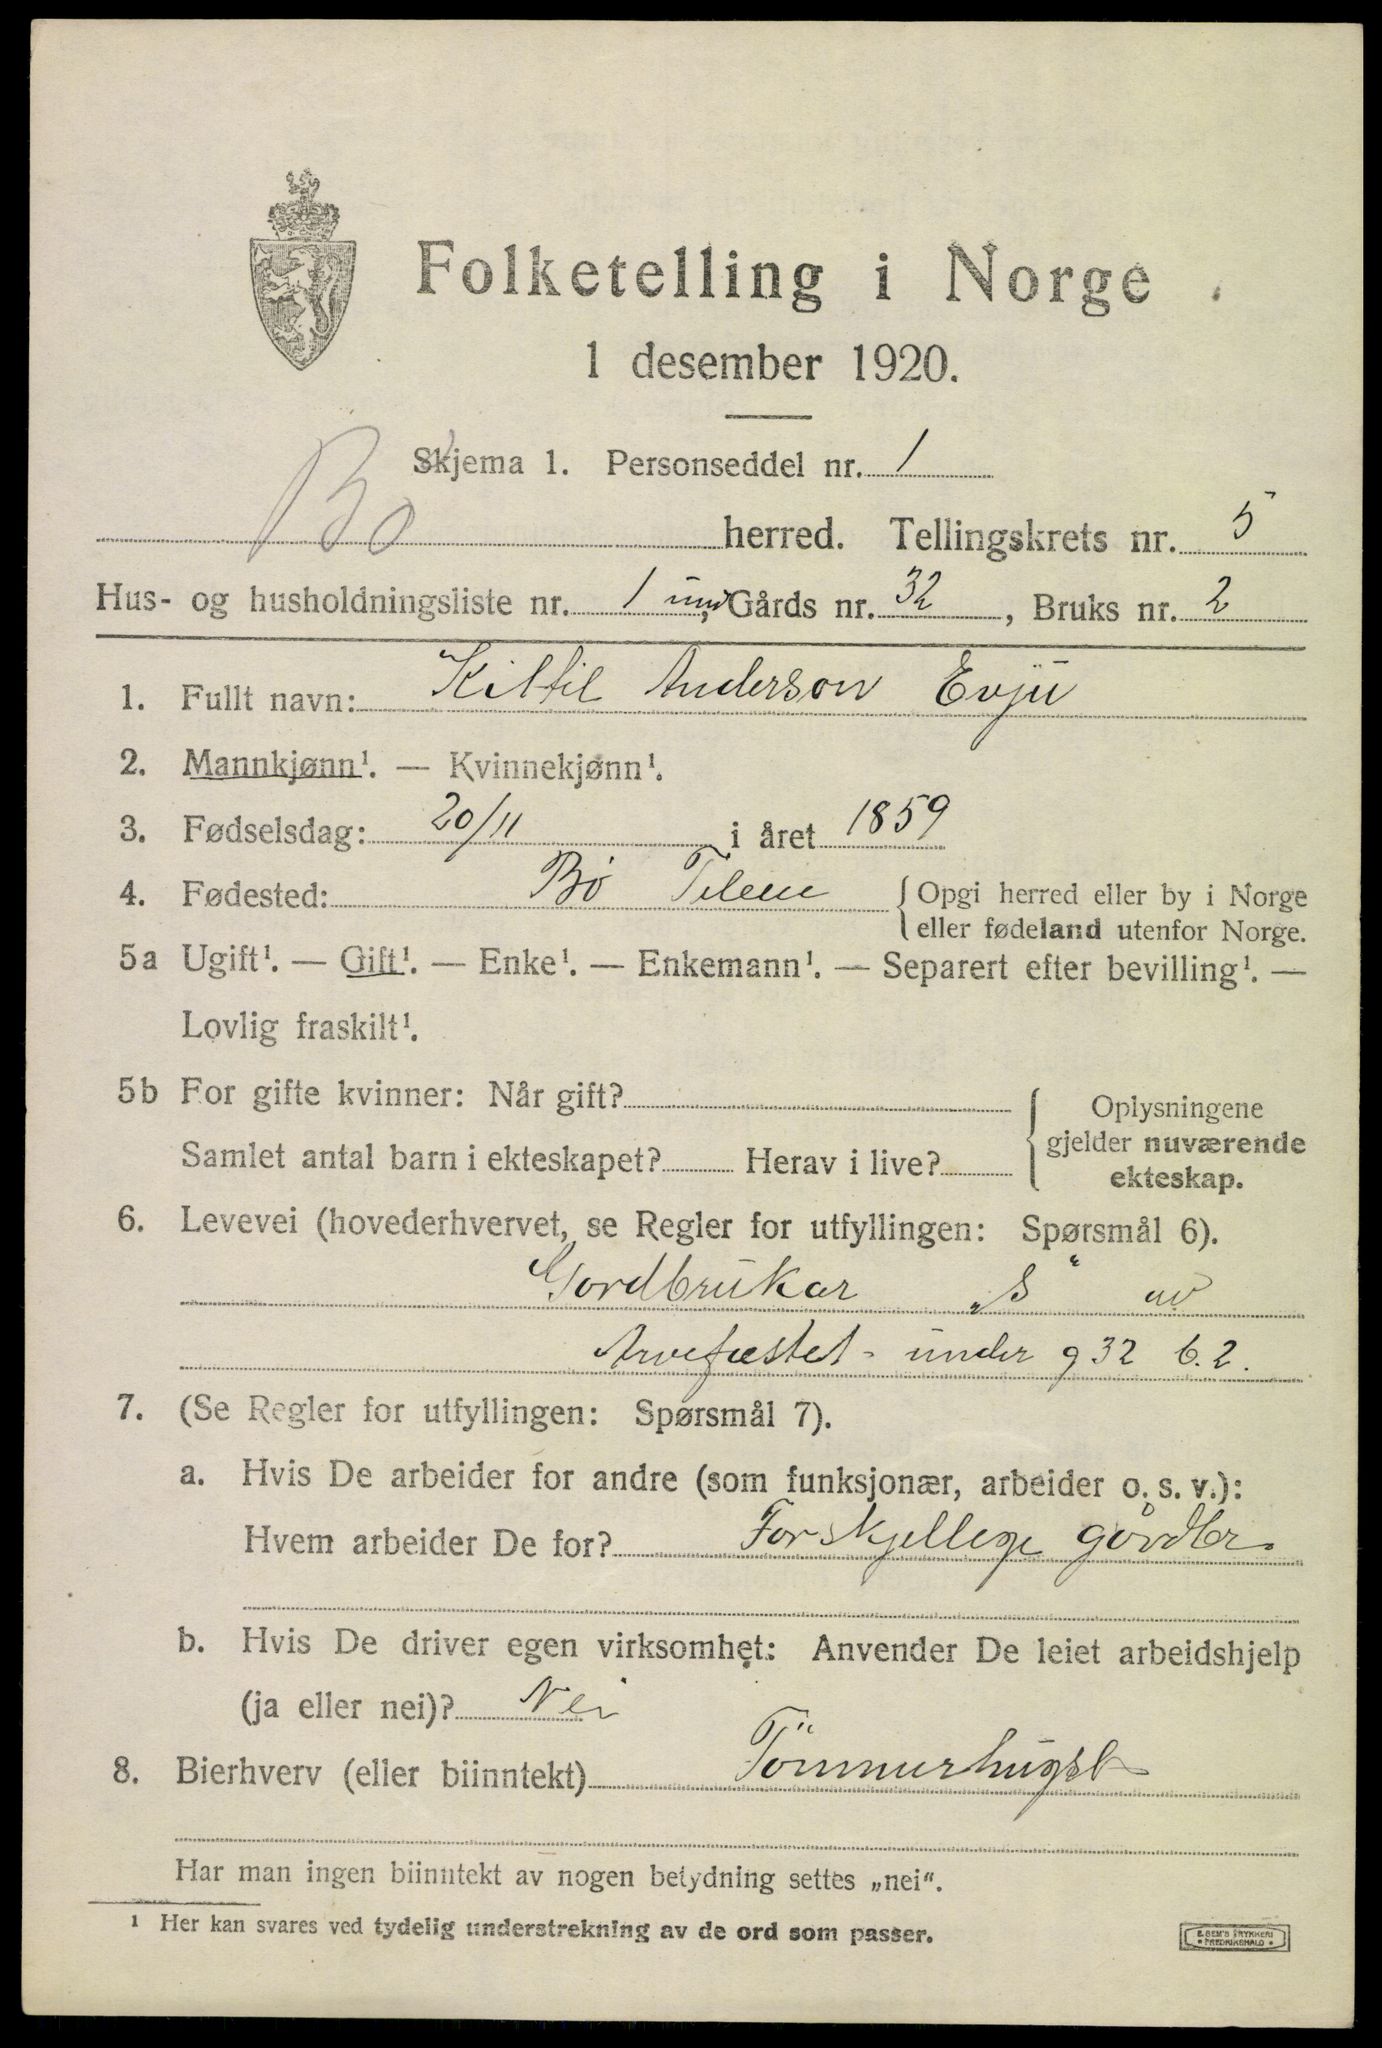 Folketelling i Norge
1 desember 1920.
Skjema 1. Personseddel nr. 1
Bø herred. Tellingskrets nr. 5
Hus- og husholdningsliste nr. 1 und, Gårds nr. 32, Bruks nr. 2
1. Fullt navn: Kiltil Anderson Evjü
2. Mannkjønn¹. — Kvinnekjønn¹.
3. Fødselsdag: 20/11 i året 1859
4. Fødested: Bø Telem {Opgi herred eller by i Norge
eller fødeland utenfor Norge.
5a Ugift¹. — Gift¹. — Enke¹. — Enkemann¹. — Separert efter bevilling¹. —
Lovlig fraskilt¹.
5b For gifte kvinner: Når gift? {Oplysningene
gjelder nuværende
ekteskap.
Samlet antal barn i ekteskapet? Herav i live?
6. Levevei (hovederhvervet, se Regler for utfyllingen: Spørsmål 6).
Gordbrukar „S" av
Arvefæstet - under g 32 b. 2.
7. (Se Regler for utfyllingen: Spørsmål 7).
a. Hvis De arbeider for andre (som funksjonær, arbeider o. s. v.):
Hvem arbeider De for? Forskjellege gårdbr.
b. Hvis De driver egen virksomhet: Anvender De leiet arbeidshjelp
(ja eller nei)? Nei
8. Bierhverv (eller biinntekt) Tömmerhugst
Har man ingen biinntekt av nogen betydning settes „nei".
¹ Her kan svares ved tydelig understrekning av de ord som passer.
E. SEM'S TRYKKERI
FREDRIKSHALD